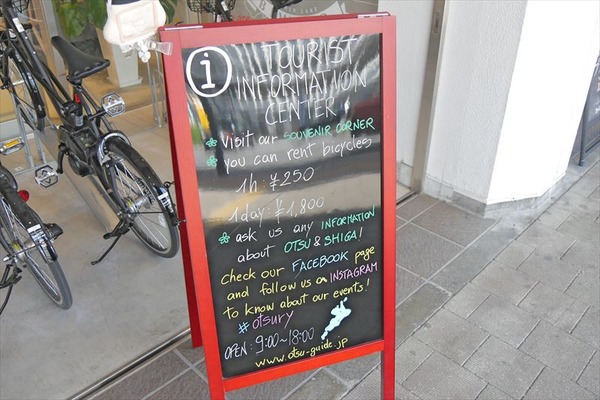 i TOURIST
INFORMATION
CENTER
* visit our SOUVENIR CORNER
* you can rent bicycles
1h: ¥250
1day: ¥1,800
* ask us any INFORMATION
about OTSU & SHIGA!
check our FACEBOOK page
and follow us on INSTAGRAM
to know about our events!
# otsury
OPEN: 9:00~18:00
www.otsu-guide.jp